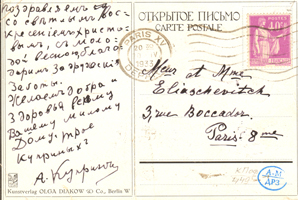 поздравляем вас
со светлым Вос-
кресением Христо-
вым, с моло-
дой весной, благо-
дарим за
заботы.
Желаем добра и
здоровья всему
Вашему милому
Дому, трое
Куприных
А. Куприн
Kunstverlag OLGA DIAKOW & Co, Berlin W
ОТКРЫТОЕ ПИСЬМО
CARTE POSTALE
PARIS XV
1933
40c
Mr et Mme
Eliaschevitch
3, rue Boccador.
Paris 8me
А-М
ДРЗ